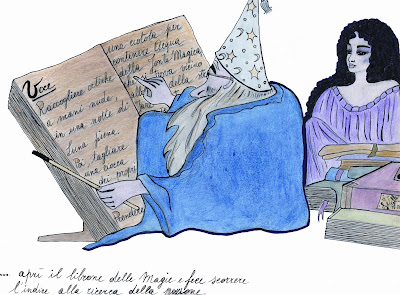 Raccogliere ortiche
a mani nude
in una notte di
luna piena.
Poi tagliare
una ciocca
dei propri
Prendere
una ciotola per
contenere l'acqua
della Fonte Magica
trova vicino
della
... aprì il librone delle Magie e fece scorrere
l'indice alla ricerca della